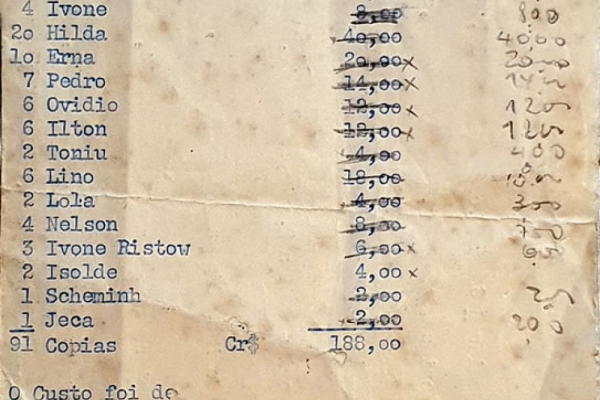 4 Ivone 8,00 800
2o Hilda 40,00 4000
1o Erna 20,00x
7 Pedro 14,00x
6 Ovidio 12,00x 1200
6 Ilton 12,00x 1200
2 Toniu 4,00 400
6 Lino 18,00
2 Lola 4,00
4 Nelson 8,00
3 Ivone Ristow 6,00x 600
2 Isolde 4,00x
1 Scheminh 2,00
1 Jeca 2,00 200
91 Copias Cr$ 188,00
O Custo foi de